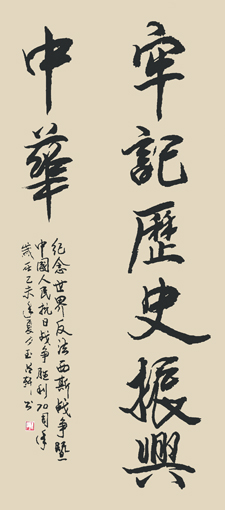 牢記歷史振興
中華
紀念世界反法西斯战争暨
中國人民抗日战争胜利70周年
歲在乙未年夏月